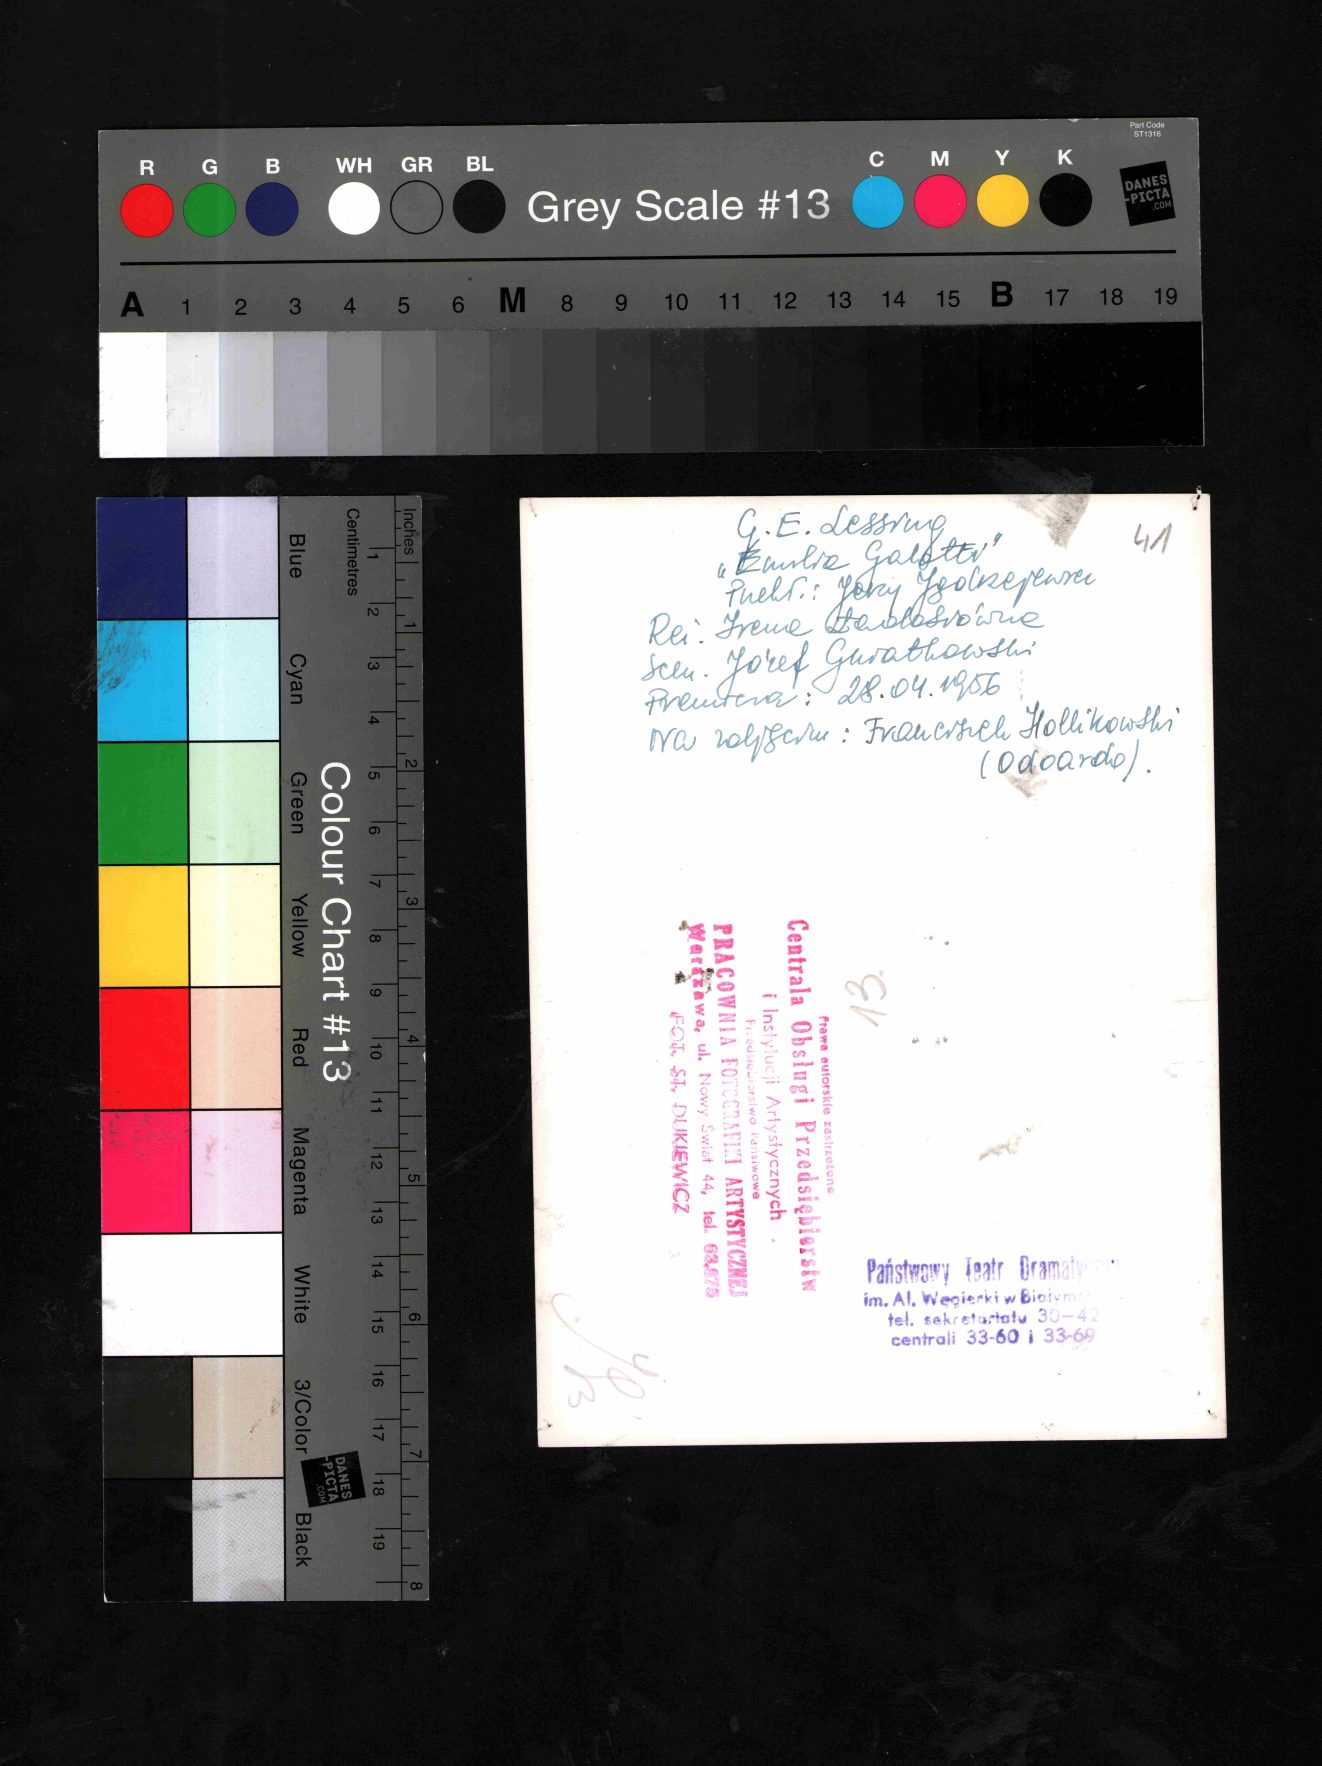 Part Code
ST1316
R G B WH GR BL Grey Scale #13 C M Y K
DANES
-PICTA
.COM
A 1 2 3 4 5 6 M 8 9 10 11 12 13 14 15 B 17 18 19
Colour Chart #13
Blue Cyan Green Yellow Red Magenta White 3/Color Black
Centimetres 1 2 3 4 5 6 7 8 9 10 11 12 13 14 15 16 17 18 19
Inches 1 2 3 4 5 6 7 8
DANES
-PICTA
.COM
41
G. E. Lessing
„Emilia Galotti"
Jerzy
Reż. Irena
Scen. Józef
Premiera: 28.04.1956
Na zdjęciu: Franciszek Hollikowski
(Odoardo).
13.
Prawa autorskie zastrzeżone
Centrala Obsługi Przedsiębiorstw
i Instytucji Artystycznych
Przedsiębiorstwo Państwowe
PRACOWNIA FOTOGRAFIKI ARTYSTYCZNEJ
Warszawa, ul. Nowy Świat 44, tel.
FOT. ST. DUKIEWICZ
Państwowy Teatr
im. Al. Węgierki w
tel. sekretariatu 30-42
centrali 33-60 i 33-69